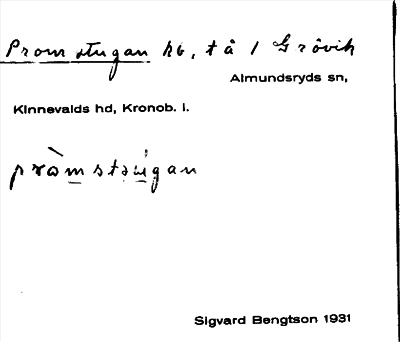 Promstugan hb, t å 1 Grövik
Almundsryds sn,
Kinnevalds hd, Kronob. l.
pròmstùgan
Sigvard Bengtson 1931